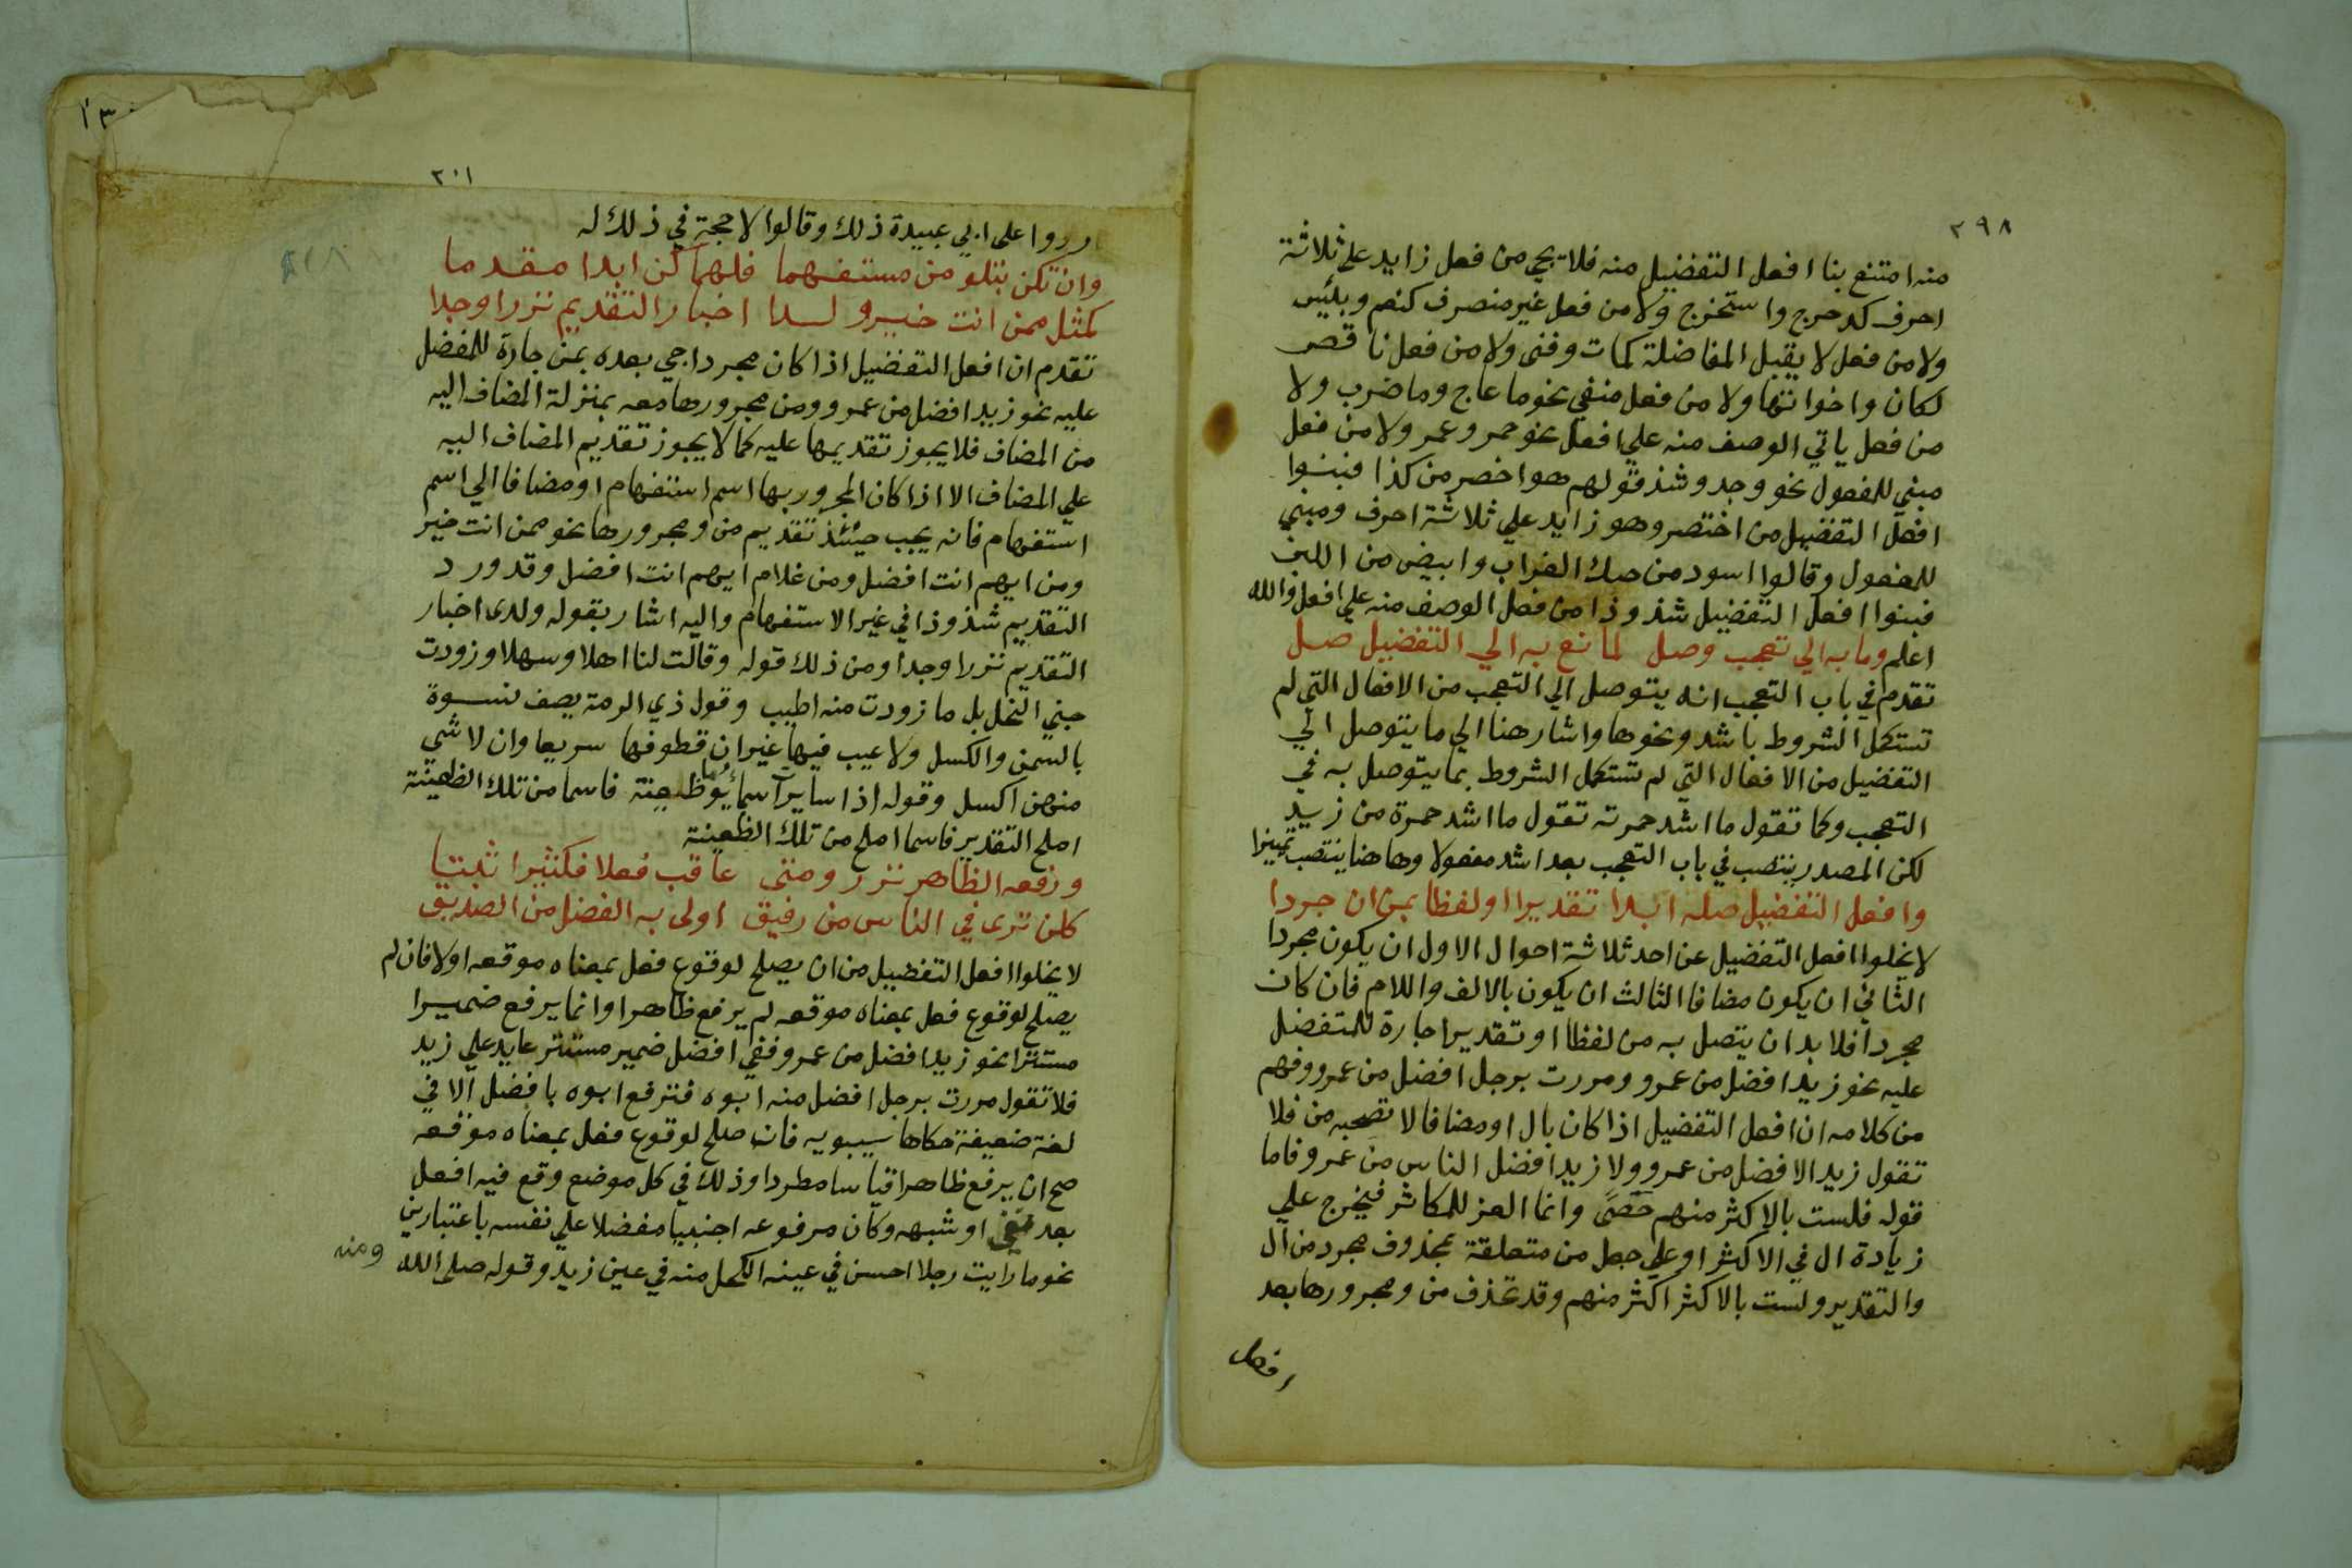 ٢٩٨
منه امتنع بنا افعل التفضيل منه فلا يجي من فعل زايد على ثلاثة
احرف كدحرج واستخرج ولا من فعل غير منصرف كنعم وبئيس
ولا من فعل لا يقبل المفاضلة كمات وفنى ولا من فعل ناقص
لكان واخواتها ولا من فعل منفي نحو ما عاج وما ضرب ولا
من فعل ياتي الوصف منه علي افعل نحو حمر وعمر ولا من فعل
مبني للمفعول نحو وجد وشذ قولهم هو اخصر من كذا فبنوا
افعل التفضيل من اختصر وهو زايد علي ثلاثة احرف ومبني
للمفعول وقالوا اسود من حنك الغراب وابيض من اللبن
فبنوا افعل التفضيل شذوذا من فعل الوصف منه علي افعل والله
اعلم وما به الي تعجب وصل لمانع به الي التفضيل صل
تقدم في باب التعجب انه يتوصل الي التعجب من الافعال التي لم
تستكمل الشروط باشد ونحوها واشار هنا الي ما يتوصل الي
التفضيل من الافعال التي لم تستكمل الشروط بما يتوصل به في
التعجب وكما تقول ما اشد حمرته تقول ما اشد حمرة من زيد
لكن المصدر ينتصب في باب التعجب بعد اشد مفعولا وهاهنا ينتصب تمييزا
وافعل التفضيل صله ابدا تقديرا او لفظا بمن ان جردا
لا يخلوا افعل التفضيل عن احد ثلاثة احوال الاول ان يكون مجردا
الثاني ان يكون مضافا الثالث ان يكون بالالف واللام فان كان
مجردا فلا بد ان يتصل به من لفظا او تقديرا جارة للمتفضل
عليه نحو زيد افضل من عمرو ومررت برجل افضل من عمرو وفهم
من كلامه ان افعل التفضيل اذا كان بال او مضافا لا تصحبه من فلا
تقول زيد الافضل من عمرو ولا زيد افضل الناس من عمرو فاما
قوله فلست بالاكثر منهم حصًى وانما العز للمكاثر فيخرج علي
زيادة ال في الاكثر او علي جعل من متعلقة بمحذوف مجرد من ال
والتقدير ولست بالاكثر اكثر منهم وقد تحذف من ومجرورها بعد
افعل
٣٠١
رروا على ابي عبيدة ذلك وقالوا لا حجة في ذلك له
وان تكن بتلو من مستفهما فلهما كن ابدا مقدما
كمثل ممن انت خير ولدا اخبار التقديم نزرا وجدا
تقدم ان افعل التفضيل اذا كان مجردا جي بعده بمن جارة للمفضل
عليه نحو زيد افضل من عمرو ومن مجرورها معه بمنزلة المضاف اليه
من المضاف فلا يجوز تقديمها عليه كما لا يجوز تقديم المضاف اليه
علي المضاف الا اذا كان المجرور بها اسم استفهام او مضافا الي اسم
استفهام فانه يجب حينئذ تقديم من ومجرورها نحو ممن انت خير
ومن ايهم انت افضل ومن غلام ايهم انت افضل وقد ورد
التقديم شذوذا في غير الاستفهام واليه اشار بقوله ولدى اخبار
التقديم نزرا وجدا ومن ذلك قوله وقالت لنا اهلا وسهلا وزودت
جني النخل بل ما زودت منه اطيب وقول ذي الرمة يصف نسوة
بالسمن والكسل ولا عيب فيها غير ان قطوفها سريعا وان لا شي
منهن اكسل وقوله اذا سايرت اسما يوما ظعينة فاسما من تلك الظعينة
املح التقدير فاسما املح من تلك الظعينة
ورفعه الظاهر نزر ومتى عاقب فعلا فكثيرا ثبتا
كلن ترى في الناس من رفيق اولى به الفضل من الصديق
لا يخلوا افعل التفضيل من ان يصلح لوقوع فعل بمعناه موقعه اولا فان لم
يصلح لوقوع فعل بمعناه موقعه لم يرفع ظاهرا وانما يرفع ضميرا
مستترا نحو زيد افضل من عمرو ففي افضل ضمير مستتر عايد علي زيد
فلا تقول مررت برجل افضل منه ابوه فترفع ابوه بافضل الا في
لغة ضعيفة حكاها سيبويه فان صلح لوقوع فعل بمعناه موقعه
صح ان يرفع ظاهرا قياسا مطردا وذلك في كل موضع وقع فيه افعل
بعد نفي او شبهه وكان مرفوعه اجنبيا مفضلا علي نفسه باعتبارين
نحو ما رايت رجلا احسن في عينه الكحل منه في عين زيد وقوله صلى الله
ومنه